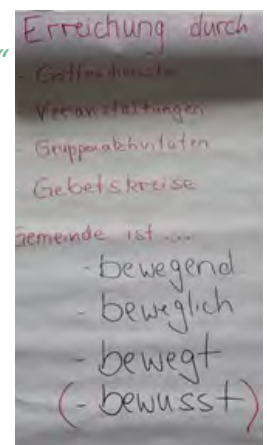 Erreichung durch
- Gottesdienste
- Veranstaltungen
- Gruppenaktivitäten
- Gebetskreise
Gemeinde ist....
- bewegend
- beweglich
- bewegt
(- bewusst)